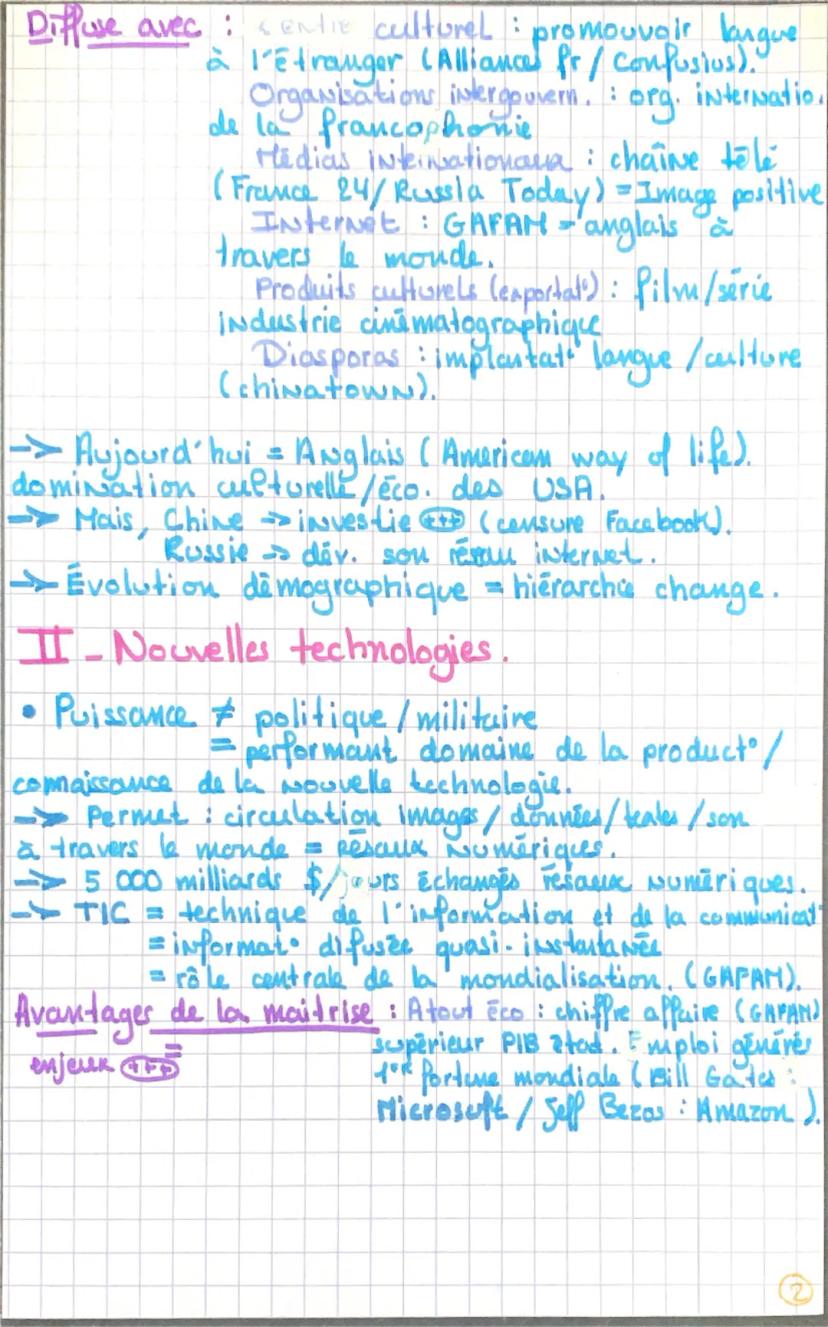 Diffuse avec : centre culturel : promouvoir langue
à l'Étranger (Alliances fr / Confusius).
Organisations intergouvern. : org. internatio.
de la francophonie
Médias internationaux : chaîne télé
(France 24/ Russia Today) = Image positive
Internet : GAFAM = anglais à
travers le monde.
Produits culturels (exportat°) : film/série
industrie cinématographique
Diasporas : implantat° langue / culture
(chinatown).
-> Aujourd'hui = Anglais (American way of life).
domination culturelle/éco. des USA.
-> Mais, Chine -> investie +++ (censure Facebook).
Russie -> dév. son réseau internet.
-> Évolution démographique = hiérarchie change.
II - Nouvelles technologies.
• Puissance ≠ politique / militaire
= performant domaine de la product° /
connaissance de la nouvelle technologie.
-> Permet : circulation images / données / textes / son
à travers le monde = réseaux numériques.
-> 5 000 milliards $/jours échangés réseaux numériques.
-> TIC = technique de l'information et de la communicat°
= informat° difusée quasi-instantanée
= rôle centrale de la mondialisation. (GAFAM).
Avantages de la maitrise : Atout Éco : chiffre affaire (GAFAM)
enjeux +++ = supérieur PIB état. Emploi générés
1ère fortune mondiale (Bill Gates :
Microsoft / Jeff Bezos : Amazon).
2